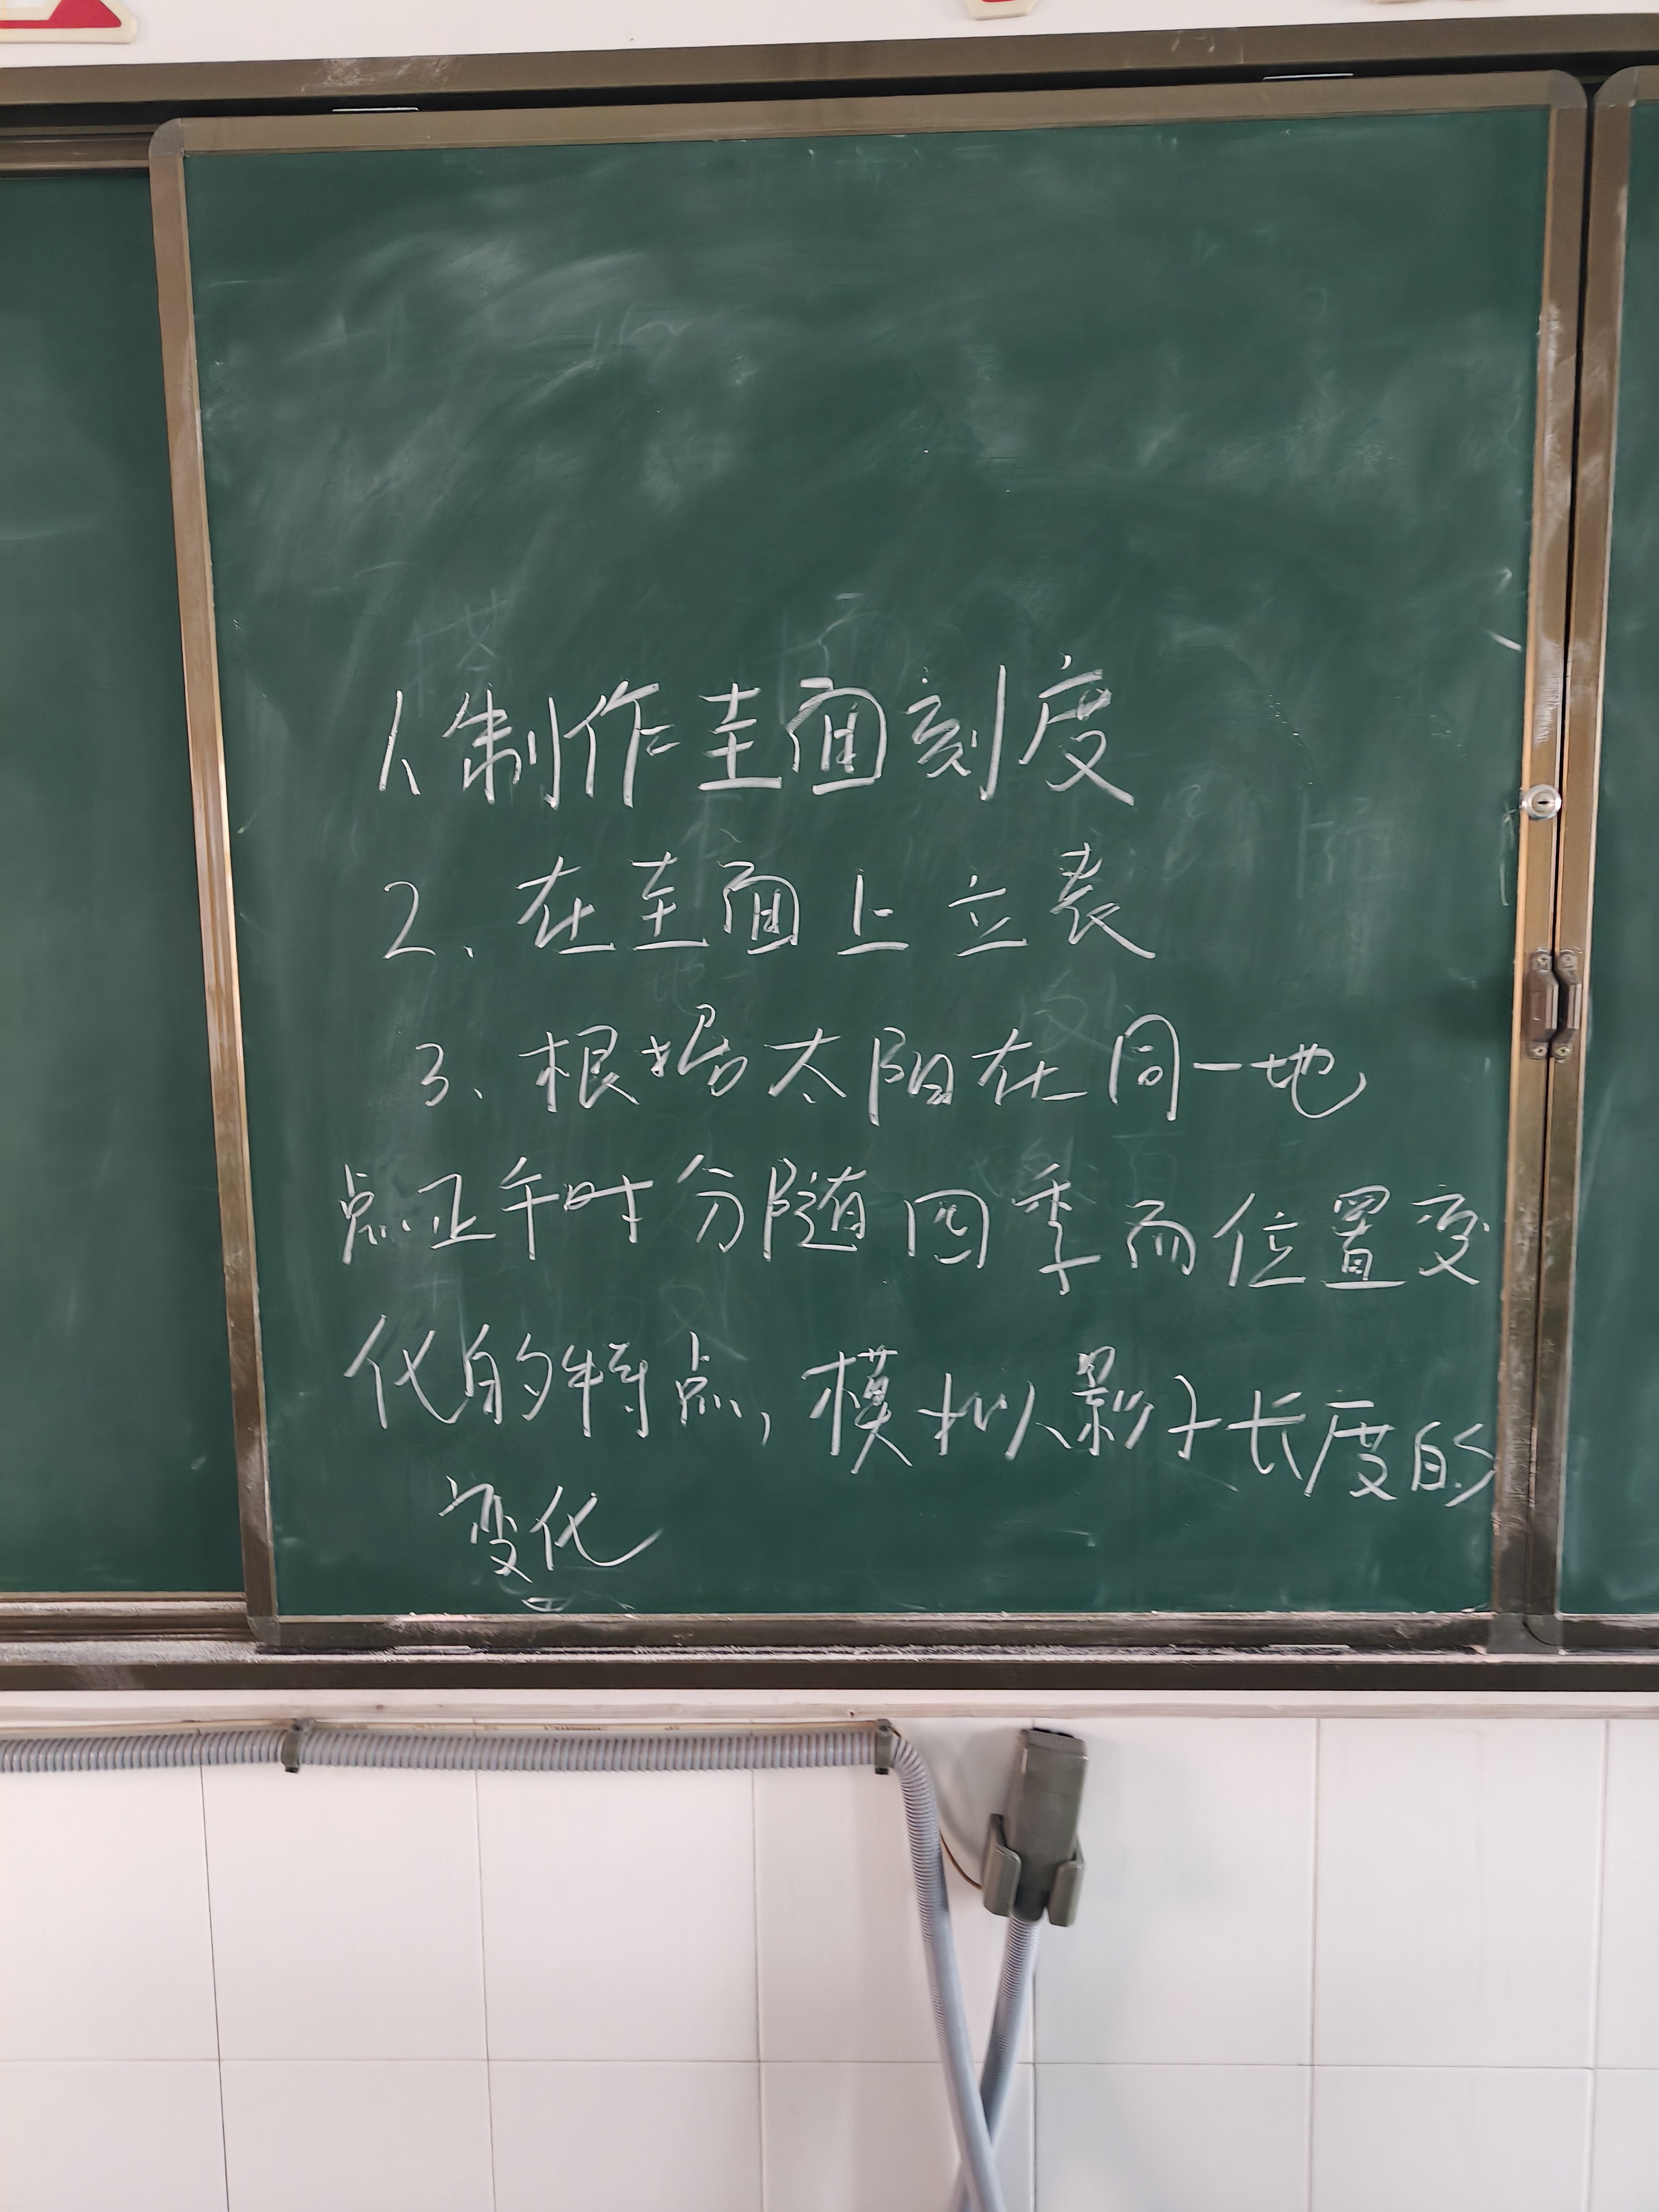 1、制作圭面刻度
2、在圭面上立表
3、根据太阳在同一地
点正午时分随四季而位置变
化的特点，模拟影子长度的
变化